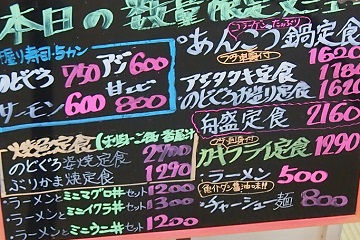 本日の数量限定メニュー
握り寿司・5カン
のどぐろ 750 アジ 600
サーモン 600 甘エビ 800
焼魚定食
のどぐろ塩焼定食 2900
ぶりかま焼定食 1290
・ラーメンとミニマグロ丼セット 1200
・ラーメンとミニイクラ丼セット 1300
・ラーメンとミニウニ丼セット 1200
コラーゲンたっぷり
あんこう鍋定食 1620
アジタタキ定食
のどぐろお造り定食 1620
舟盛定食 2160
カキフライ定食 1290
・ラーメン 500
魚介ダシ醤油味!!
・チャーシュー麺 800